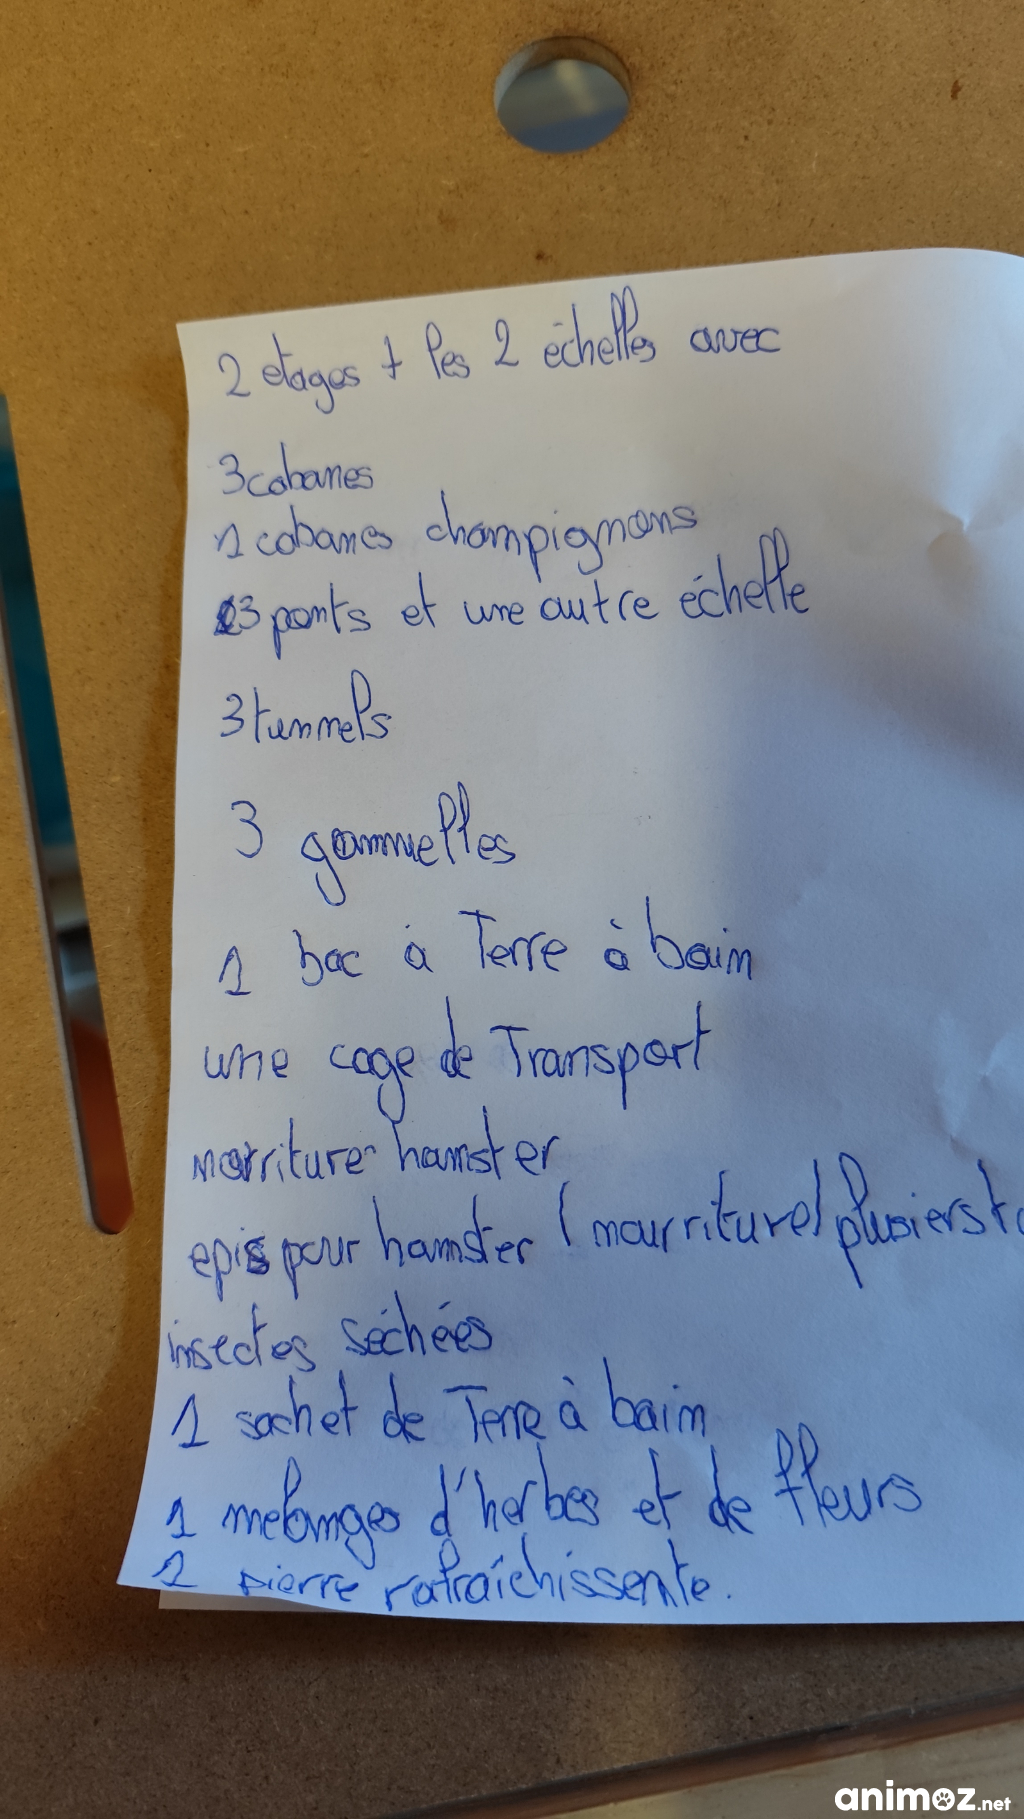 2 etages + les 2 échelles avec
3 cabanes
1 cabanes champignons
3 ponts et une autre échelle
3 tunnels
3 gammelles
1 bac à Terre à bain
une cage de Transport
norriture hamster
epis pour hamster (nourriture) plusiers
insectes séchées
1 sachet de Terre à bain
1 melanges d'herbes et de fleurs
1 pierre rafraîchissente.
animoz.net